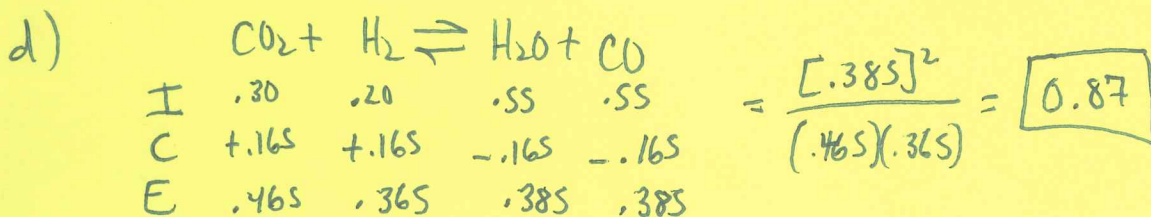 d) CO₂ + H₂ ⇌ H₂O + CO
I .30 .20 .55 .55
C +.165 +.165 -.165 -.165
E .465 .365 .385 .385
= [.385]² / (.465)(.365) = 0.87